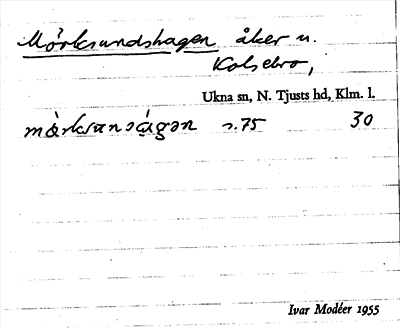 Mörksundshagen åker u.
Kolsebro,
Ukna sn, N. Tjusts hd, Klm. l.
s.75 30
Ivar Modéer 1955